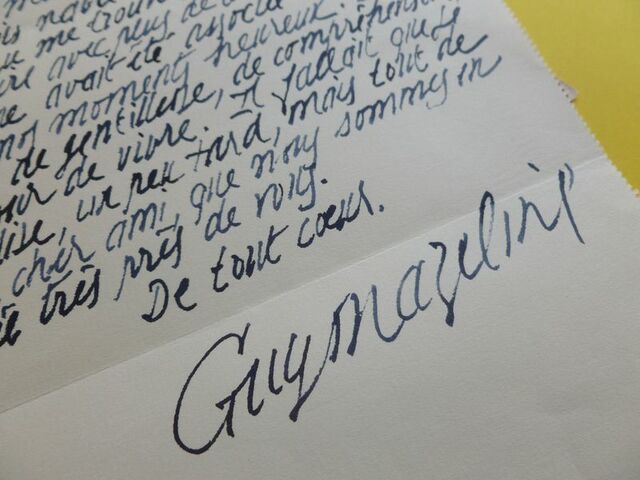 me trouv
avec plus de
avait été associé
nos moments heureux.
de gentillesse, de compréhension
de vivre. Il fallait que je
un peu tard, mais tout de
cher ami, que nous sommes en
très près de vous.
De tout coeur.
Guy Mazeline